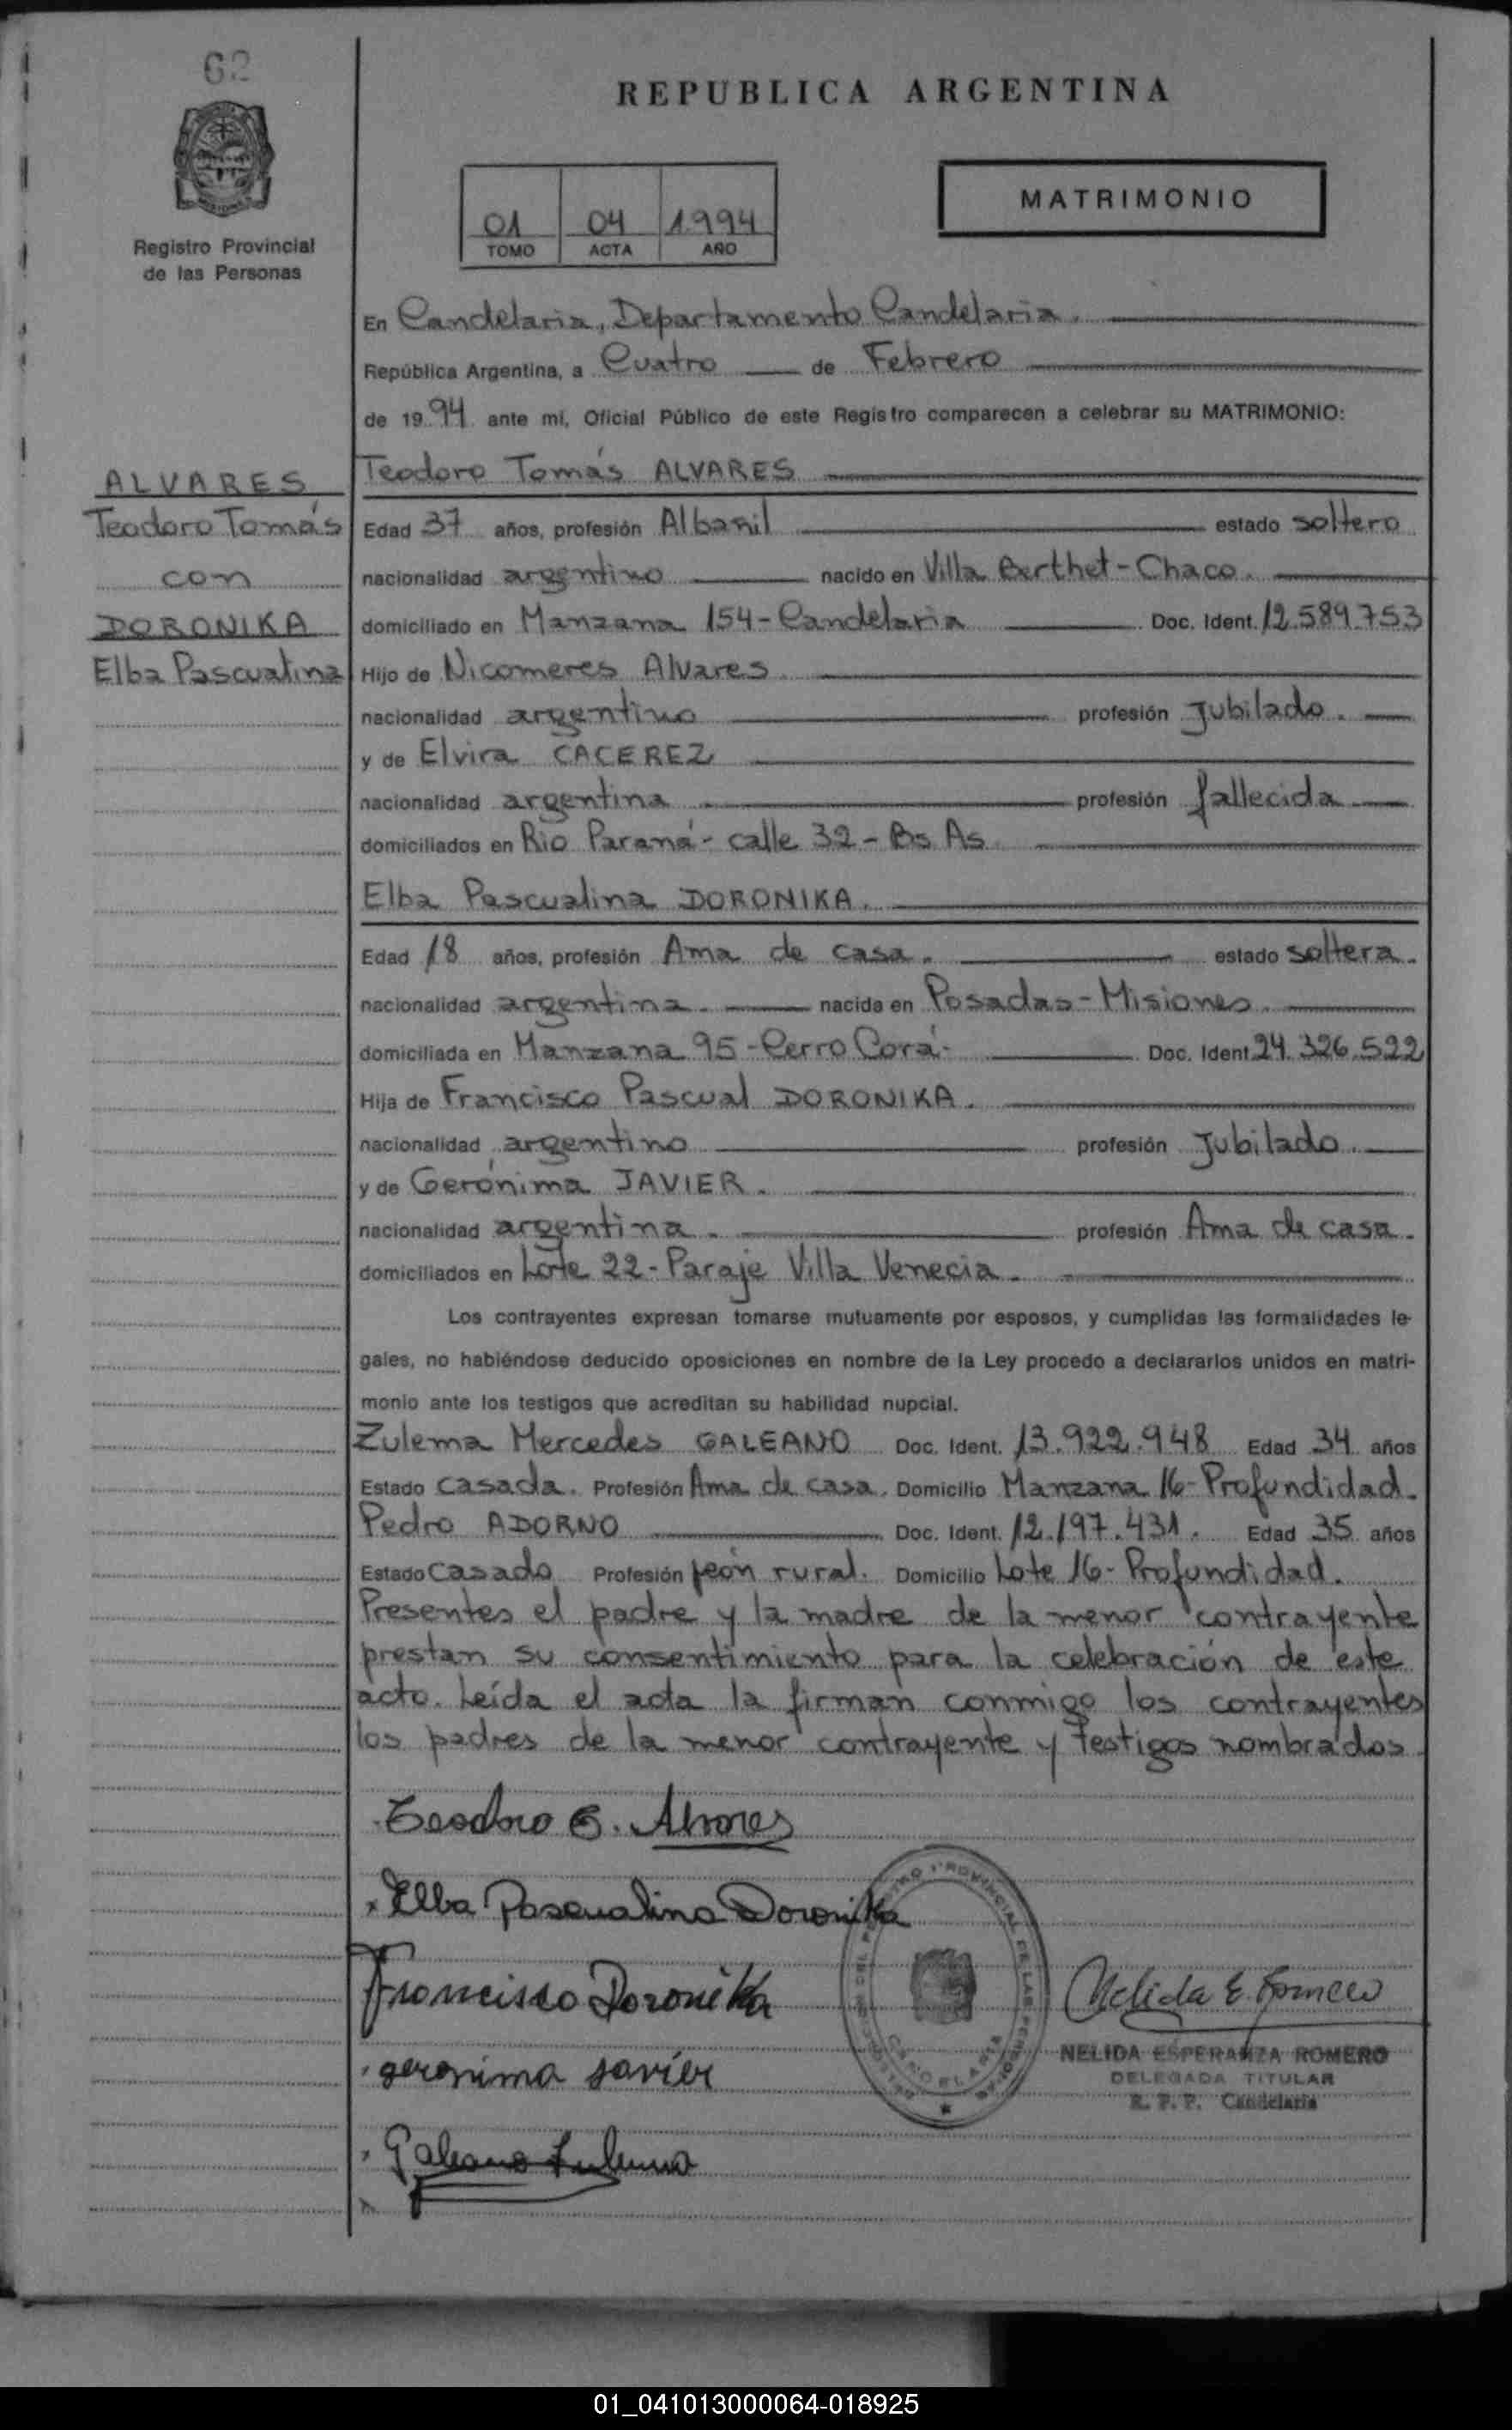 62
REPUBLICA ARGENTINA
Registro Provincial
de las Personas
01 04 1994
TOMO ACTA AÑO
MATRIMONIO
En Candelaria, Departamento Candelaria.
República Argentina, a Cuatro de Febrero
de 1994 ante mi, Oficial Público de este Registro comparecen a celebrar su MATRIMONIO:
ALVARES
Teodoro Tomás
con
DORONIKA
Elba Pascualina
Teodoro Tomás ALVARES
Edad 37 años, profesión Albañil estado soltero
nacionalidad argentino nacido en Villa Berthet-Chaco.
domiciliado en Manzana 154-Candelaria Doc. Ident. 12.589.753
Hijo de Nicomeres Alvares.
nacionalidad argentino profesión Jubilado.
y de Elvira CACEREZ
nacionalidad argentina profesión fallecida
domiciliados en Rio Paraná- calle 32-Bs As.
Elba Pascualina DORONIKA.
Edad 18 años, profesión Ama de casa. estado soltera.
nacionalidad argentina. nacida en Posadas-Misiones.
domiciliada en Manzana 95-Cerro Corá- Doc. Ident. 24.326.522
Hija de Francisco Pascual DORONIKA.
nacionalidad argentino profesión Jubilado.
y de Gerónima JAVIER.
nacionalidad argentina. profesión Ama de casa.
domiciliados en Lote 22-Paraje Villa Venecia.
Los contrayentes expresan tomarse mutuamente por esposos, y cumplidas las formalidades le-
gales, no habiéndose deducido oposiciones en nombre de la Ley procedo a declararlos unidos en matri-
monio ante los testigos que acreditan su habilidad nupcial.
Zulema Mercedes GALEANO Doc. Ident. 13.922.948 Edad 34 años
Estado casada. Profesión Ama de casa. Domicilio Manzana 16-Profundidad.
Pedro ADORNO Doc. Ident. 12.197.431. Edad 35 años
Estado Casado Profesión peón rural. Domicilio Lote 16-Profundidad.
Presentes el padre y la madre de la menor contrayente
prestan su consentimiento para la celebración de este
acto. Leída el acta la firman conmigo los contrayentes
los padres de la menor contrayente y testigos nombrados.
Teodoro T. Alvares
Elba Pascualina Doronika
Francisco Doronika
geronima Javier
Galeano Zulema
Nelida E. Romero
NELIDA ESPERANZA ROMERO
DELEGADA TITULAR
R. P. P. Candelaria
01_041013000064-018925